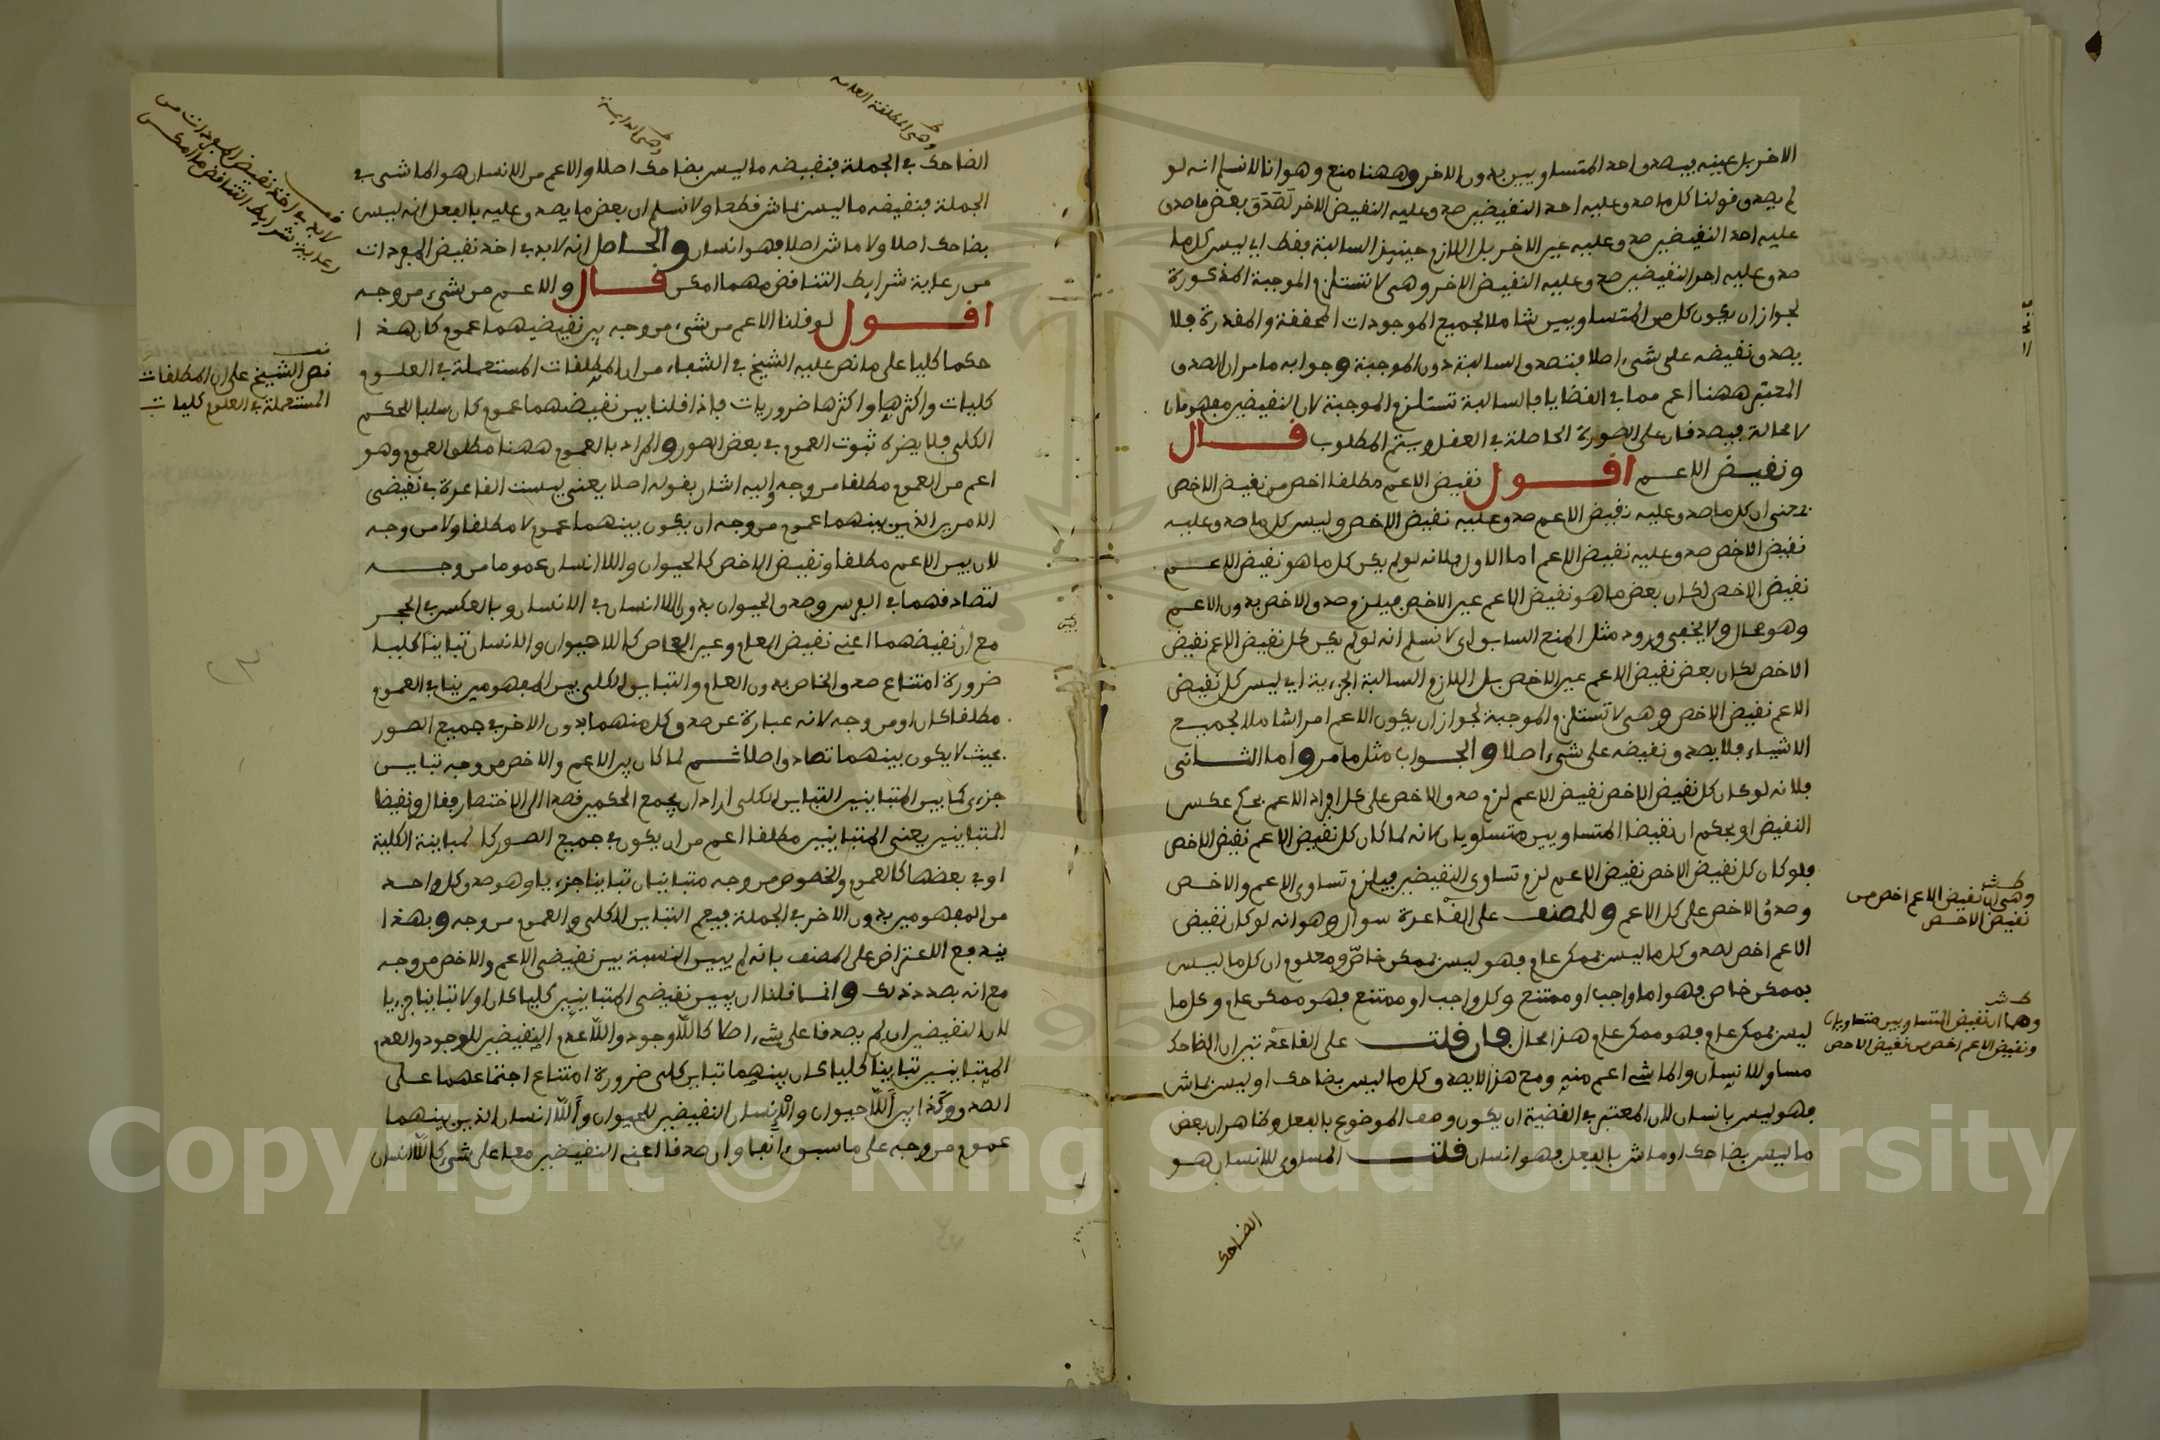 الاخر بل عينه فيصدق احد المتساويين بدون الاخر وههنا منع وهو انا لا نسلم انه لو
لم يصدق قولنا كل ما صدق عليه احد النقيضين صدق عليه النقيض الاخر لصدق بعض ما صدق
عليه احد النقيضين صدق عليه عين الاخر بل اللازم حينئذ السالبة فقط اي ليس كل ما
صدق عليه احد النقيضين صدق عليه النقيض الاخر وهى لا تستلزم الموجبة المذكورة
لجواز ان يكون كل من المتساويين شاملا لجميع الموجودات المحققة والمقدرة فلا
يصدق نقيضه على شىء اصلا فتصدق السالبة دون الموجبة وجوابه ما مر ان الصدق
المعتبر ههنا اعم مما في القضايا فالسالبة تستلزم الموجبة لان النقيضين مفهومان
لا محالة فيصدقان على الصورة الحاصلة في العقل ويتم المطلوب قال
ونقيض الاعم اقول نقيض الاعم مطلقا اخص من نقيض الاخص
بمعنى ان كل ما صدق عليه نقيض الاعم صدق عليه نقيض الاخص وليس كل ما صدق عليه
نقيض الاخص صدق عليه نقيض الاعم اما الاول فلانه لو لم يكن كل ما هو نقيض الاعم
نقيض الاخص لكان بعض ما هو نقيض الاعم عين الاخص فيلزم صدق الاخص بدون الاعم
وهو محال ولا يخفى ورود مثل المنع السابق اى لا نسلم انه لو لم يكن كل نقيض الاعم نقيض
الاخص لكان بعض نقيض الاعم عين الاخص بل اللازم السالبة الجزءية اي ليس كل نقيض
الاعم نقيض الاخص وهى لا تستلزم الموجبة لجواز ان يكون الاعم امرا شاملا لجميع
الاشياء فلا يصدق نقيضه على شىء اصلا والجواب مثل ما مر واما الثانى
فلانه لو كان كل نقيض الاخص نقيض الاعم لزم صدق الاخص على كل افراد الاعم بحكم عكس
النقيض او بحكم ان نقيضا المتساويين متساويان لانه لما كان كل نقيض الاعم نقيض الاخص
فلو كان كل نقيض الاخص نقيض الاعم لزم تساوى النقيضين فيلزم تساوى الاعم والاخص
وصدق الاخص على كل الاعم وللمصنف على القاعدة سوال وهو انه لو كان نقيض
الاعم اخص لصدق كل ما ليس بممكن عام فهو ليس بممكن خاص ومعلوم ان كل ما ليس
بممكن خاص فهو اما واجب او ممتنع وكل واجب او ممتنع فهو ممكن عام وكل ما
ليس بممكن عام فهو ممكن عام هذا محال فان قلت على القاعدتين ان الضاحك
مساو للانسان والماشى اعم منه ومع هذا لا يصدق كل ما ليس بضاحك او ليس بماش
فهو ليس بانسان لان المعتبر في القضية ان يكون وصف الموضوع بالفعل وظاهر ان بعض
ما ليس بضاحك او ماش بالفعل فهو انسان قلت المساوى للانسان هو
الضاحك
ط ش
وهى ان نقيض الاعم اخص من
نقيض الاخص
ط ش
وهما ان نقيض المتساويين متساويان
ونقيض الاعم اخص من نقيض الاخص
وهى المطلقة العامة
وهى الدايمة
الضاحك في الجملة فنقيضه ما ليس بضاحك اصلا والاعم من الانسان هو الماشى في
الجملة فنقيضه ما ليس بماش قطعا ولا نسلم ان بعض ما يصدق عليه بالفعل انه ليس
بضاحك اصلا ولا ماش اصلا فهو انسان والحاصل انه لا بد في اخذ نقيض المفردات
من رعاية شرايط التناقض مهما امكن قال والاعم من شىء من وجه
اقول لو قلنا الاعم من شىء من وجه بين نقيضيهما عموم كان هذا
حكما كليا على ما نص عليه الشيخ في الشفاء من ان المطلقات المستعملة في العلوم
كليات واكثرها ضروريات فاذا قلنا ليس بين نقيضيهما عموم كان سلبا للحكم
الكلى فلا يضره ثبوت العموم في بعض الصور والمراد بالعموم ههنا مطلق العموم وهو
اعم من العموم مطلقا ومن وجه واليه اشار بقوله اصلا يعنى ليست القاعدة في نقيضى
الامرين الذين بينهما عموم من وجه ان يكون بينهما عموم لا مطلقا ولا من وجه
لان بين الاعم مطلقا ونقيض الاخص كالحيوان واللاانسان عموما من وجه
لتصادقهما في الفرس وصدق الحيوان بدون اللاانسان في الانسان وبالعكس في الحجر
مع ان نقيضهما اعنى نقيض العام وعين الخاص كاللاحيوان والانسان تباينا كليا
ضرورة امتناع صدق الخاص بدون العام والتباين الكلى بين المفهومين ينافى العموم
مطلقا كان او من وجه لانه عبارة عن صدق كل منهما بدون الاخر في جميع الصور
بحيث لا يكون بينهما تصادق اصلا ثم لما كان بين الاعم والاخص من وجه تباين
جزءى كما بين المتباينين التباين الكلى اراد ان يجمع الحكمين قصدا الى الاختصار فقال ونقيضا
المتباينين يعنى المتباينين مطلقا اعم من ان يكون في جميع الصور كالمباينة الكلية
او في بعضها كالعموم والخصوص من وجه متباينان تباينا جزءيا وهو صدق كل واحد
من المفهومين بدون الاخر في الجملة فيعم التباين الكلى والعموم من وجه وبهذا
يندفع الاعتراض على المصنف بانه لم يبين النسبة بين نقيضى الاعم والاخص من وجه
مع انه بصدد ذلك وانما قلنا ان بين نقيضى المتباينين كليا كان او لا تباينا جزءيا
لان النقيضين ان لم يصدقا على شىء اصلا كاللاوجود واللاعدم النقيضين للوجود والعدم
المتباينين تباينا كليا كان بينهما تباين كلى ضرورة امتناع اجتماعهما على
الصدق وكذا بين اللاحيوان والانسان النقيضين للحيوان واللاانسان الذين بينهما
عموم من وجه على ما سبق ءانفا وان صدقا اعنى النقيضين معا على شىء كاللاانسان
لا بد في اخذ نقيض المفردات من
رعاية شرايط التناقض ما امكن
نص الشيخ على ان المطلقات
المستعملة في العلوم كليات